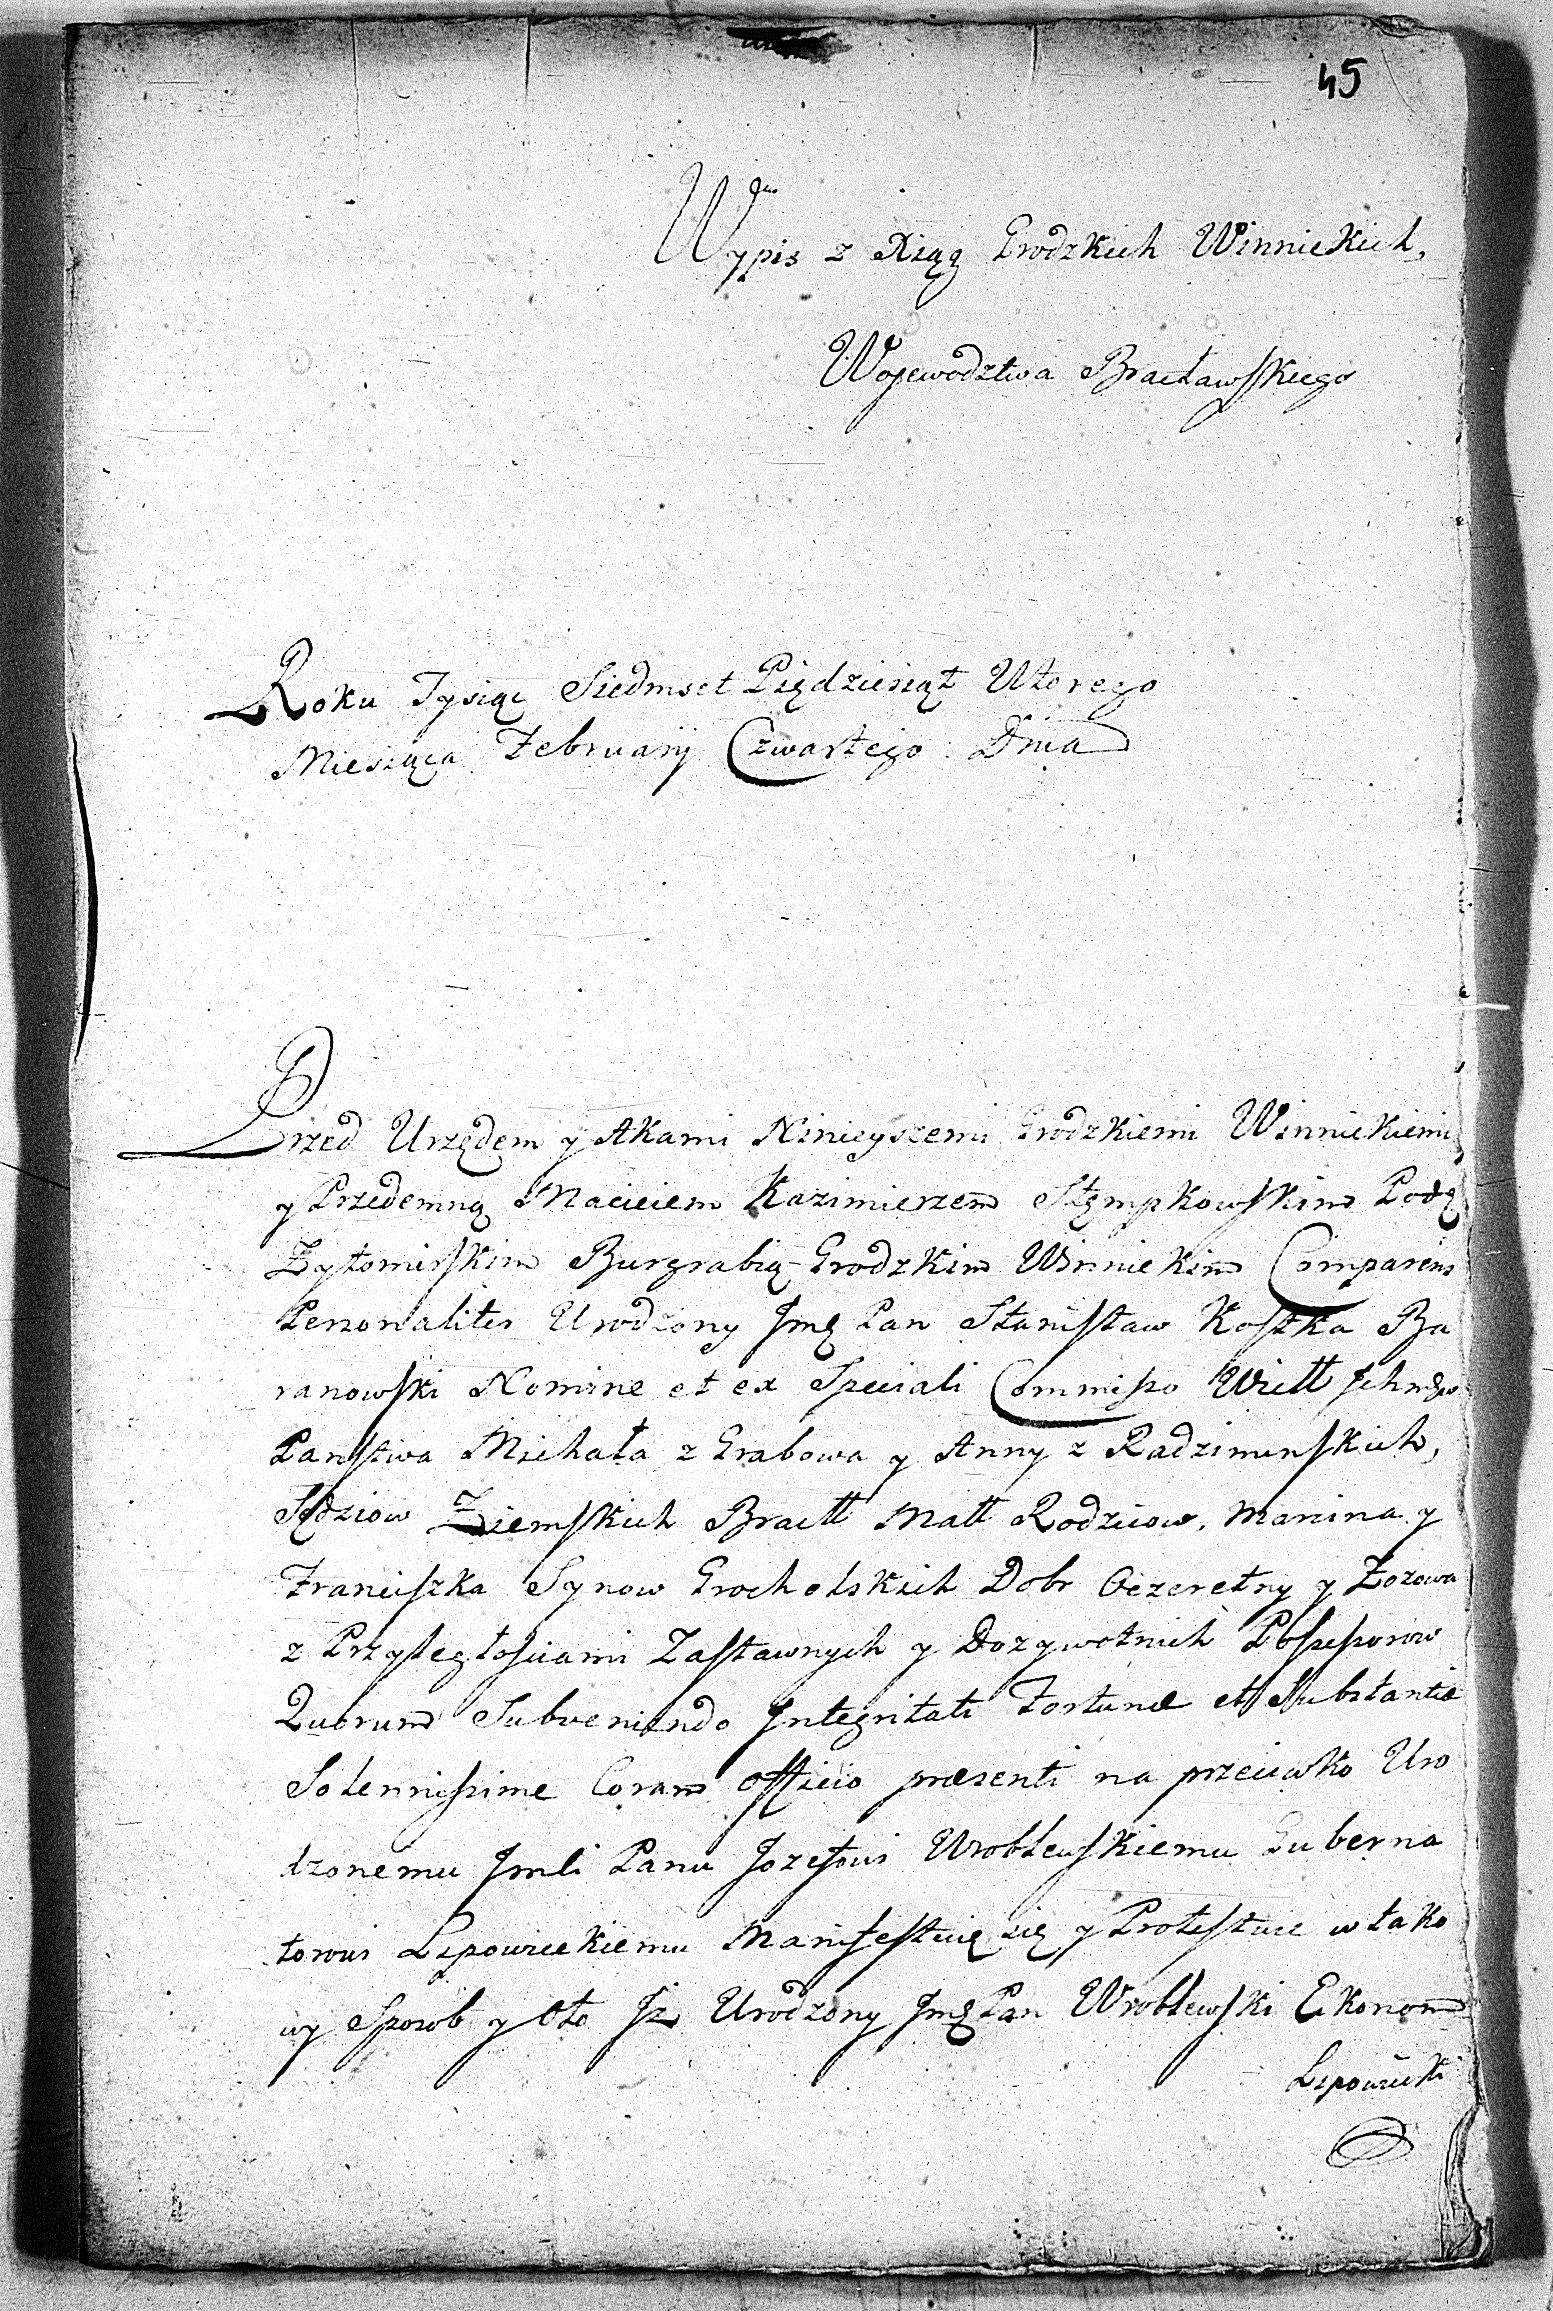 45
Wypis z Xiąg Grodzkich Winnickich,
Wojewodztwa Bracławskiego
Roku Tysiąc Siedmset Piędziesiąt Wtorego
Miesiąca February Czwartego Dnia
Przed Urzędem y Aktami Ninieyszemi Grodzkiemi Winnickiemi
y Przedemną Macieiem Kazimierzem Stępkowskim Podcz
Zytomirskim Burgrabią Grodzkim Winnickim Comparens
Personaliter Urodzony Jmę Pan Stanisław Kostka Ba
ranowski Nomine et ex Speciali Commisso Wiell Jchmęw
Panstwa Michała z Grabowa y Anny z Radziminskich,
Sędziow Ziemskich Bracll Mall Rodzicow, Marcina y
Franciszka Synow Grocholskich Dobr Oczeretny y Zozowa
z Przyległosciami Zastawnych y Dozywotnich Possessorow
Quorum Subveniendo Jntegritati Fortunæ et Substantiæ
Solennissime Coram Officio præsenti na przeciwko Uro
dzonemu Jmci Panu Jozefowi Wroblewskiemu Guberna
torowi Lipowieckiemu Manifestuię się y Protestuie w tako
wy Sposob y Oto Jz Urodzony Jmę Pan Wroblewski Ekonom
Lipowiecki